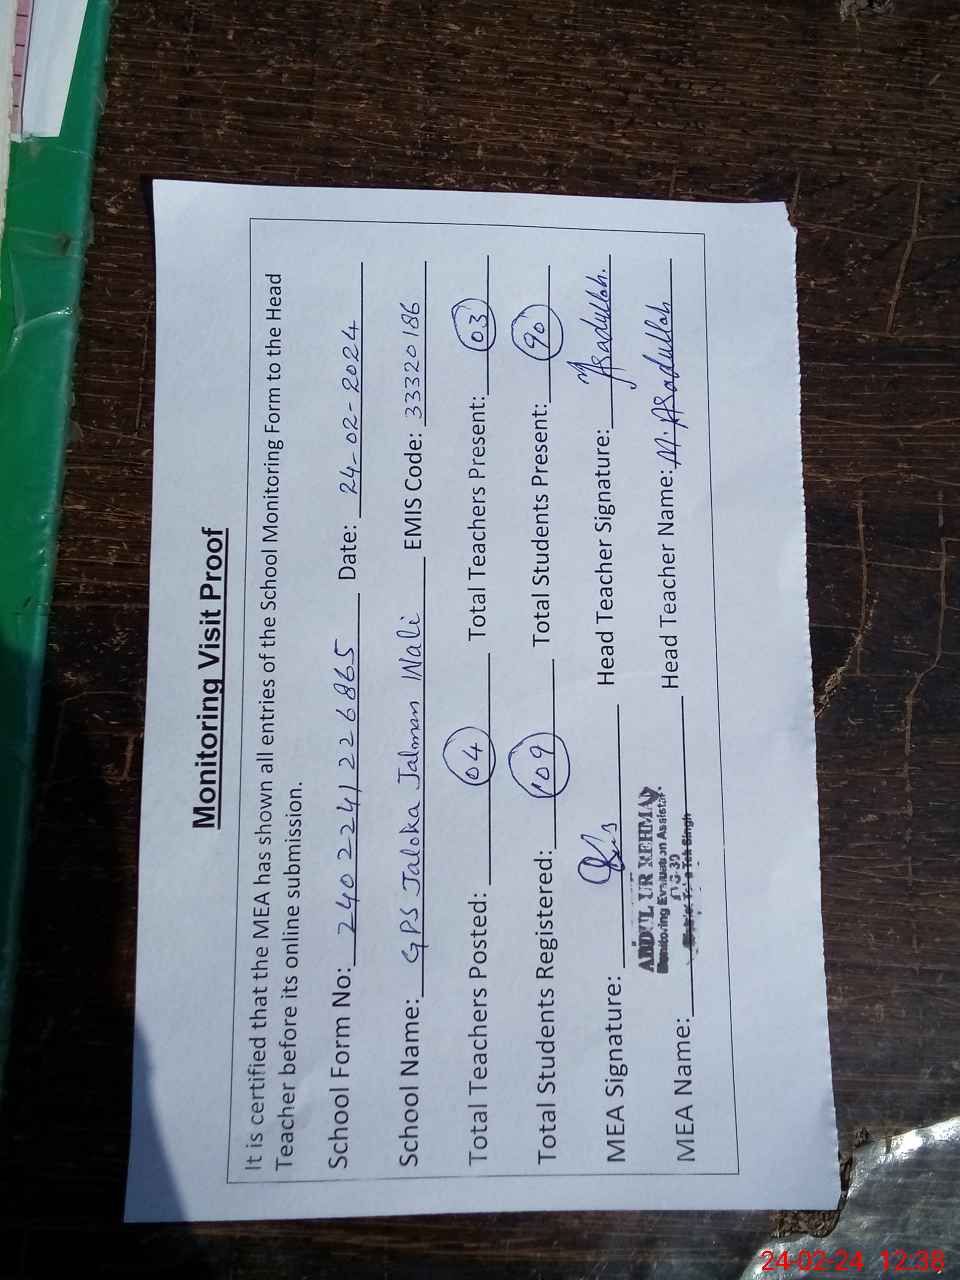 Monitoring Visit Proof
It is certified that the MEA has shown all entries of the School Monitoring Form to the Head
Teacher before its online submission.
School Form No: 2402241226865 Date: 24-02-2024
School Name: GPS Jaloka Jalman Wali EMIS Code: 33320186
Total Teachers Posted: 04 Total Teachers Present: 03
Total Students Registered: 109 Total Students Present: 90
MEA Signature: Head Teacher Signature: Asadullah.
ABDUL UR REHMAN
Monitoring Evaluation Assistant
Tek Singh
MEA Name: Head Teacher Name: M. Asadullah
24-02-24 12:38